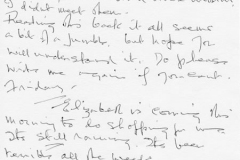 I didn't
Reading this back it all seems
a bit of a jumble. but hope you
will understand it. Do please
write me again if you can't.
Friday.
Elizabeth is coming this
morning to do shopping for me
Its still raining. Its been
terrible all the week